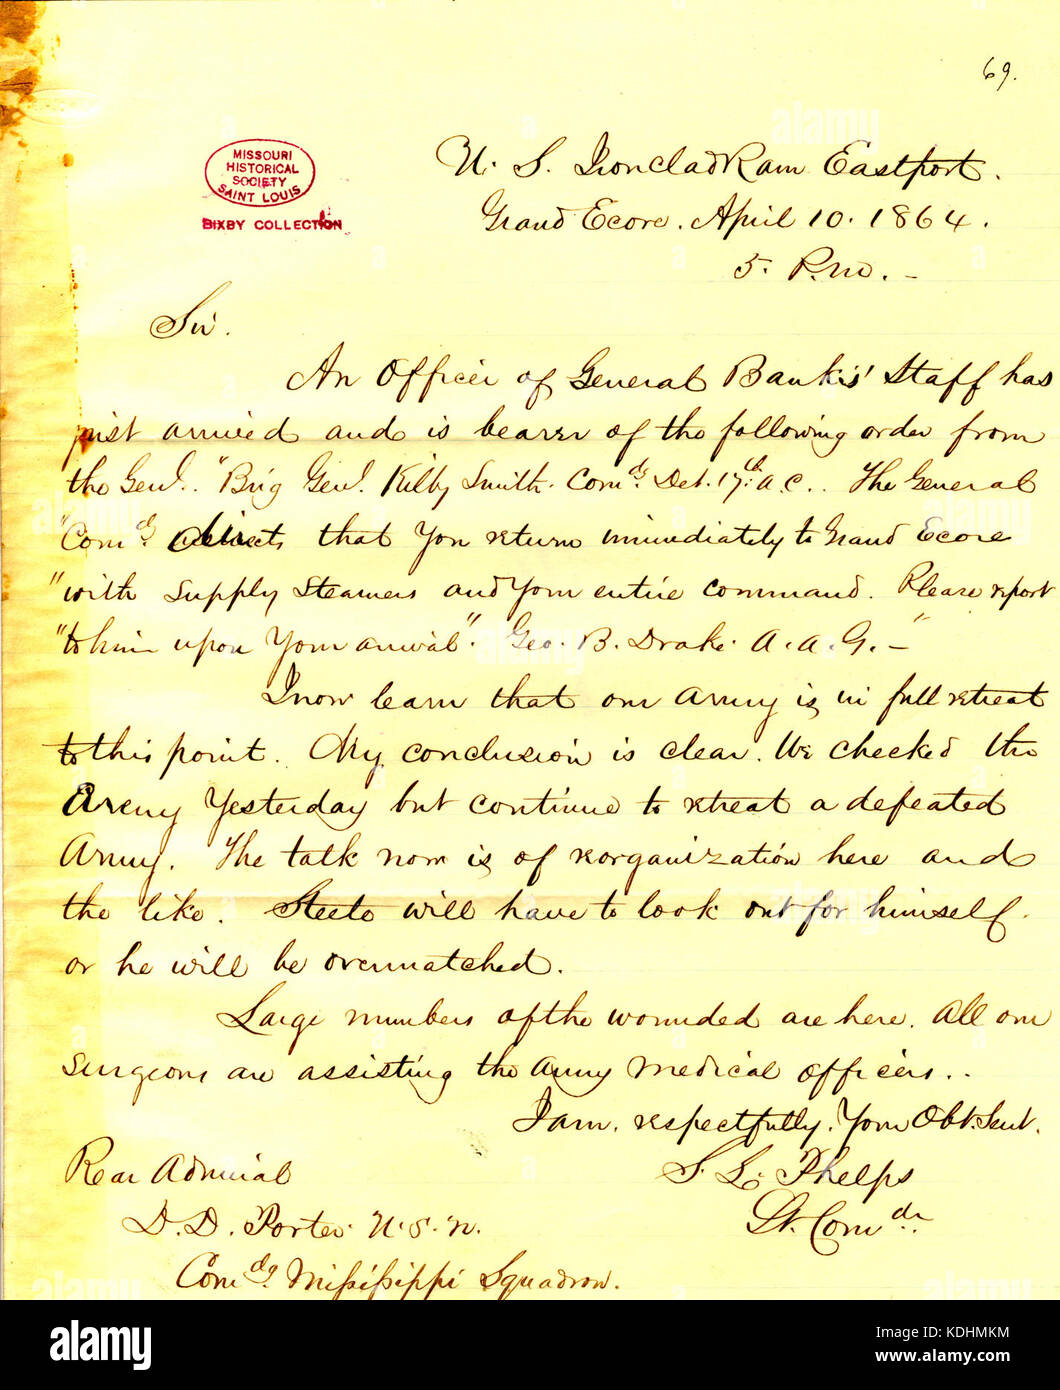 69.
MISSOURI
HISTORICAL
SOCIETY
SAINT LOUIS
BIXBY COLLECTION
U. S. Ironclad Ram Eastport.
Grand Ecore. April 10. 1864.
5. P.m. –
Sir.
An Officer of General Banks' Staff has
just arrived and is bearer of the following order from
the Genl. "Brig Genl. Kilby Smith. Comdg Det. 17th a.c.. The General
"Comdg directs that you return immediately to Grand Ecore
"with supply steamers and your entire command. Please report
"to him upon your arrival". Geo. B. Drake. A. A. G. –"
I now learn that our army is in full retreat
to this point. My conclusion is clear. We checked the
Enemy yesterday but continue to retreat a defeated
Army. The talk now is of reorganization here and
the like. Steele will have to look out for himself.
or he will be overmatched.
Large numbers of the wounded are here. All our
surgeons are assisting the Army Medical officers..
I am, respectfully. Your Obt. Sert.
S. L. Phelps
Lt. Comdr
Rear Admiral
D. D. Porter U. S. N.
Comdg Missisippi Squadron.
alamy
Image ID: KDHMKM
www.alamy.com